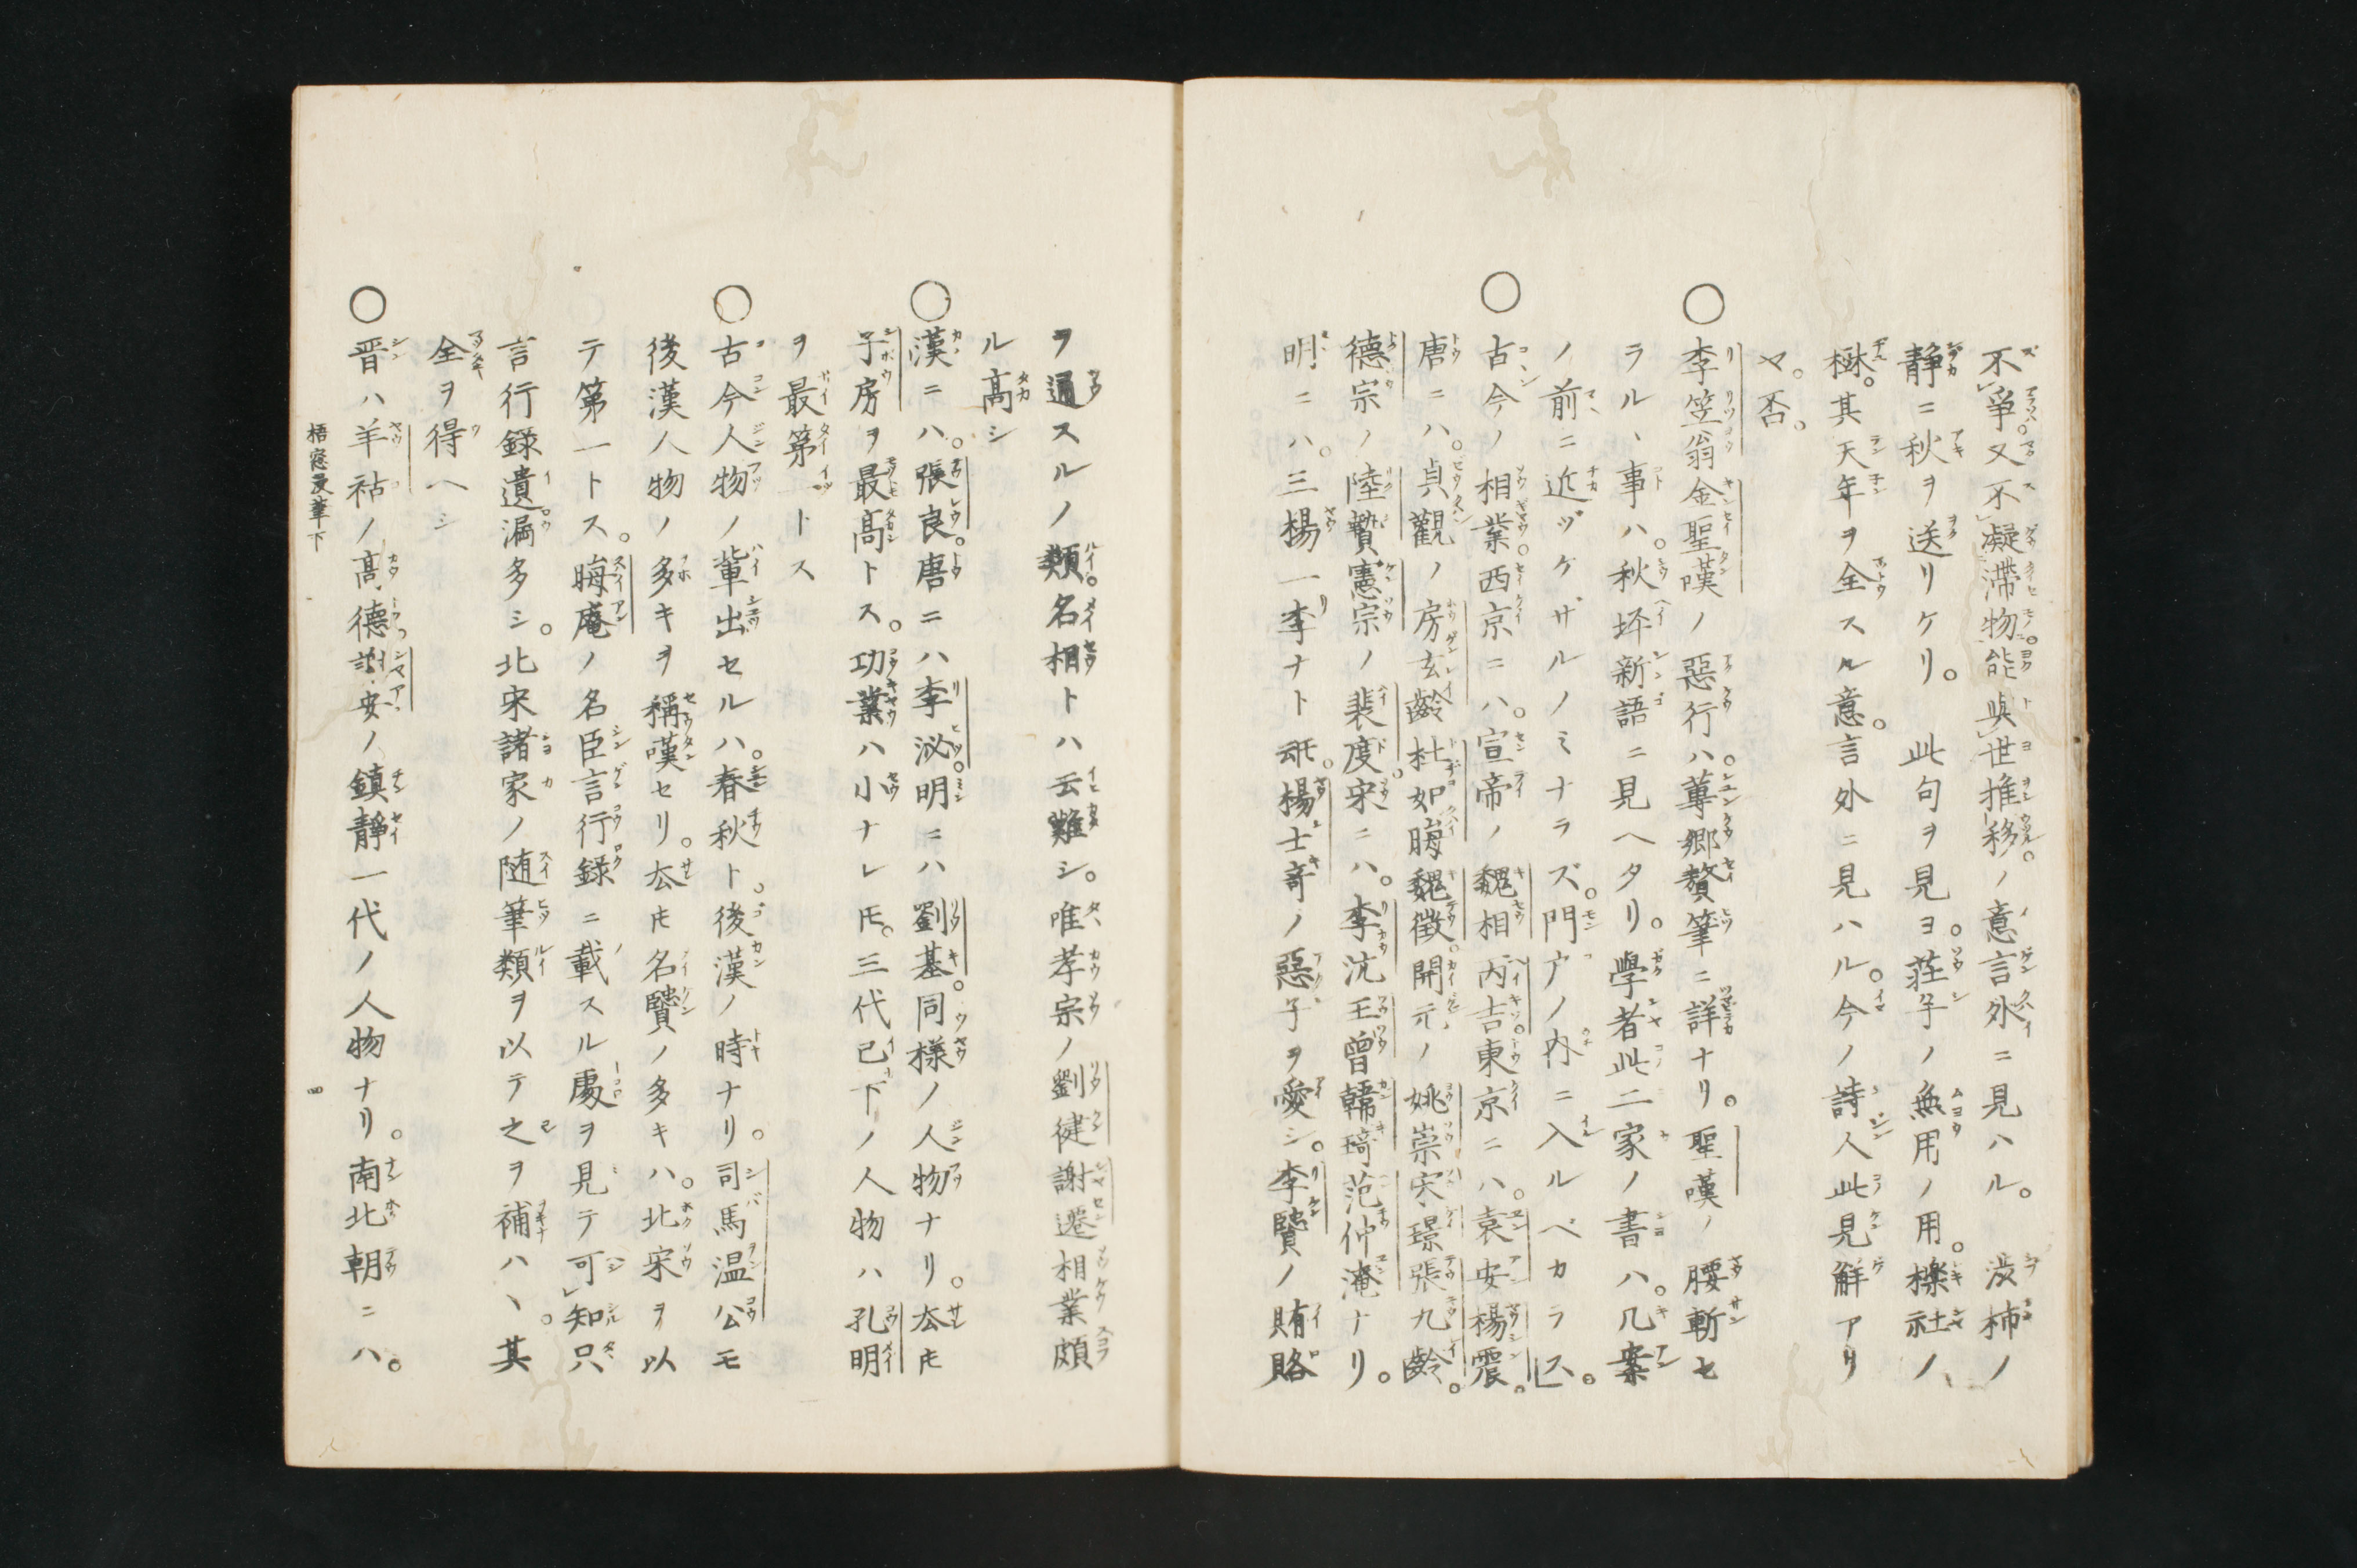 不争又不凝滞物能與世推移ノ意言外ニ見ハル。渋柿ノ
静ニ秋ヲ送リケリ。此句ヲ見ヨ。荘子ノ無用ノ用。櫟社ノ
樹。其天年ヲ全スル意。言外ニ見ハル。今ノ詩人此見解アリ
ヤ。否。
○李笠翁金聖嘆ノ惡行ハ。蓴郷贅筆ニ詳ナリ。聖嘆ノ腰斬セ
ラルヽ事ハ。秋坪新語ニ見ヘタリ。學者此二家ノ書ハ。几案
ノ前ニ近ヅケザルノミナラズ。門戸ノ内ニ入ルベカラズ。
○古今ノ相業。西京ニハ。宣帝ノ魏相丙吉。東京ニハ。袁安楊震。
唐ニハ。貞觀ノ房玄齡杜如晦魏徴。開元ノ姚崇宋璟張九齡。
德宗ノ陸贄憲宗ノ裴度。宋ニハ。李沆王曾韓琦范仲淹ナリ。
明ニハ。三楊一李ナト𪜈。楊士奇ノ惡子ヲ愛シ。李賢ノ賄賂
ヲ通スルノ類。名相トハ云難シ。唯孝宗ノ劉健謝遷相業頗
ル髙シ
○漢ニハ。張良。唐ニハ李泌。明ニハ劉基。同樣ノ人物ナリ。厺𪜈
子房ヲ最髙トス。功業ハ小ナレ𪜈。三代已下ノ人物ハ孔明
ヲ最第一トス
○古今人物ノ輩出セルハ。春秋ト。後漢ノ時ナリ。司馬温公モ
後漢人物ノ多キヲ稱嘆セリ。厺𪜈名賢ノ多キハ。北宋ヲ以
テ第一トス。晦庵ノ名臣言行録ニ載スル處ヲ見テ可知只
言行録遺漏多シ。北宋諸家ノ随筆類ヲ以テ之ヲ補ハヽ。其
全ヲ得ヘシ
○晋ハ羊祜ノ髙德。謝安ノ鎮靜一代ノ人物ナリ。南北朝ニハ。
梧窓漫筆下
四